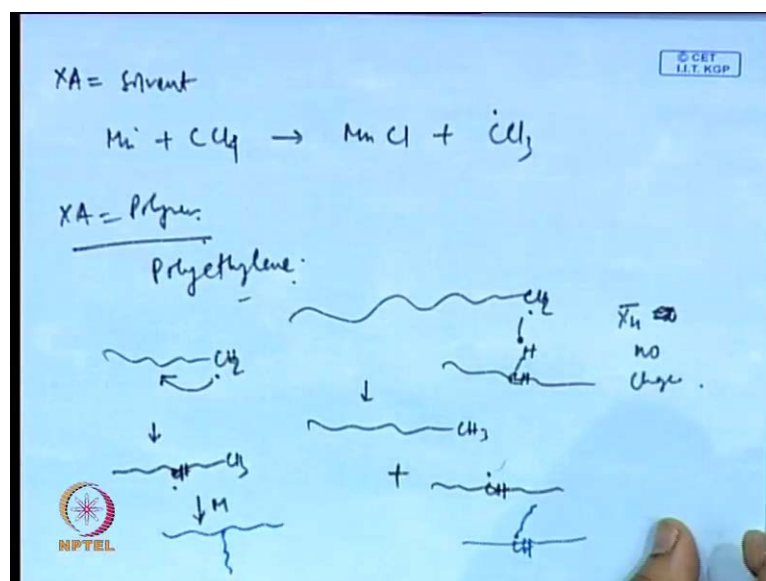 © CET
I.I.T. KGP
XA = Solvent
Mn· + CCl4 → MnCl + ĊCl3
XA = Polymer.
Polyethylene.
CH2
CH2
H
CH
X̄n
no
change.
↓
↓
CH3
CH
CH3
+
CH
↓M
CH
NPTEL